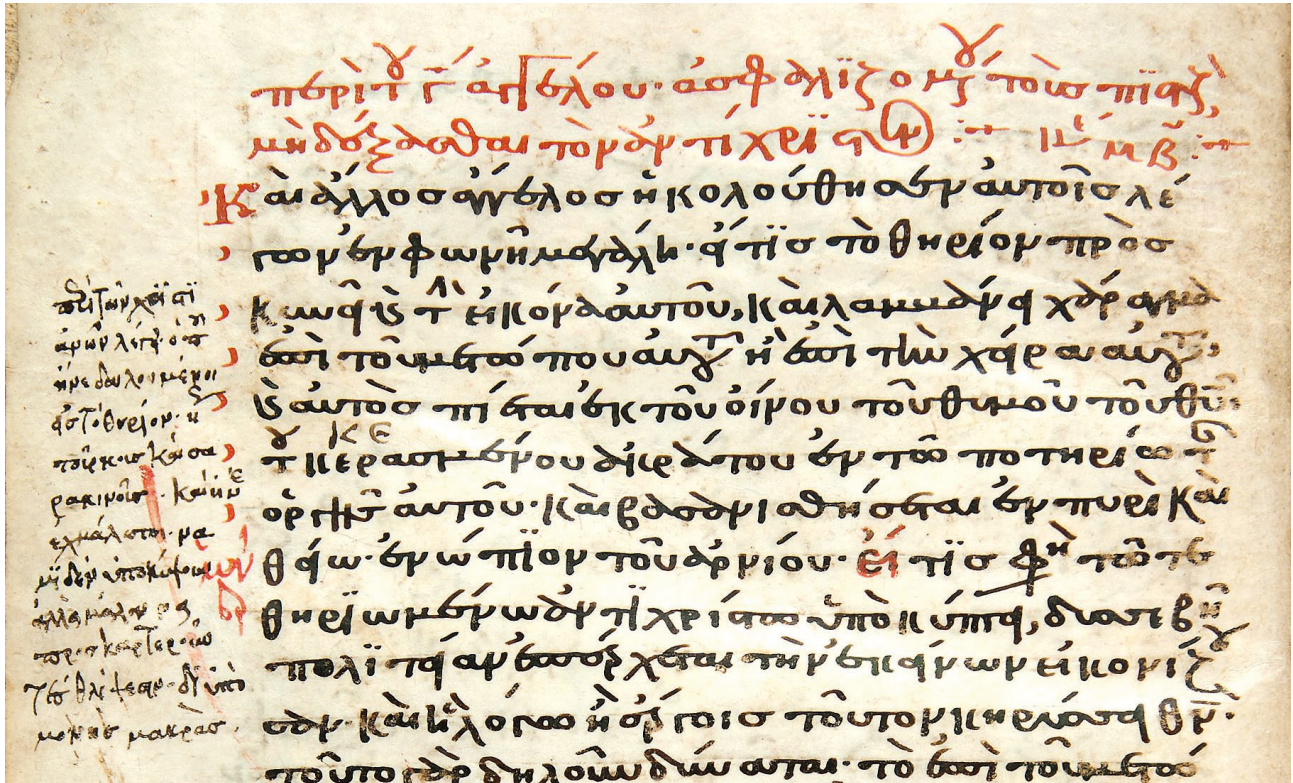 περὶ τοῦ γ̅ ἀγγέλου· ἀσφαλϊζομένου τοὺς πϊστοὺς
μὴ δέξασθαι τὸν ἀντίχρϊστον :· κεφ μβ :·
Καὶ ἄλλος ἄγγελος ἠκολούθησεν αὐτοῖς λέ
γων ἐν φωνῆ μεγάλη· εἴ τϊς τὸ θηρίον προσ
κυνεῖ καὶ τὴν εἰκόνα αὐτοῦ, καὶ λαμβάνει χάραγμα
ἐπὶ τοῦ μετώπου αὐτοῦ ἢ ἐπὶ τὴν χεῖρα αὐτοῦ,
καὶ αὐτὸς πίεται ἐκ τοῦ οἴνου τοῦ θυμοῦ τοῦ θυ̅·
τοῦ κεκερασμένου ἀκράτου ἐν τῶ ποτηρίω τῆς
ὀργῆς αὐτοῦ· καὶ βασανισθήσεται ἐν πυρὶ καὶ
θείω· ἐνώπϊον τοῦ ἀρνίου· εἴ τϊς φη τῶ τε
θηρϊωμένω ἀντϊχρίστω ὑποκύπτει, δυσσεβῆ
πολϊτείαν τὴν ἐκείνων εἰκονίζου
σαν· καὶ λόγω ἢ ἔργοις τοῦτον κηρύσσει θν̅·
τοῦτο γὰρ δηλοῦν δύναται· τὸ ἐπὶ τοῦ μετώ
λέγει
εἰς τὸ θηρίον·
ὑπο
μονῆς μακρὰς·